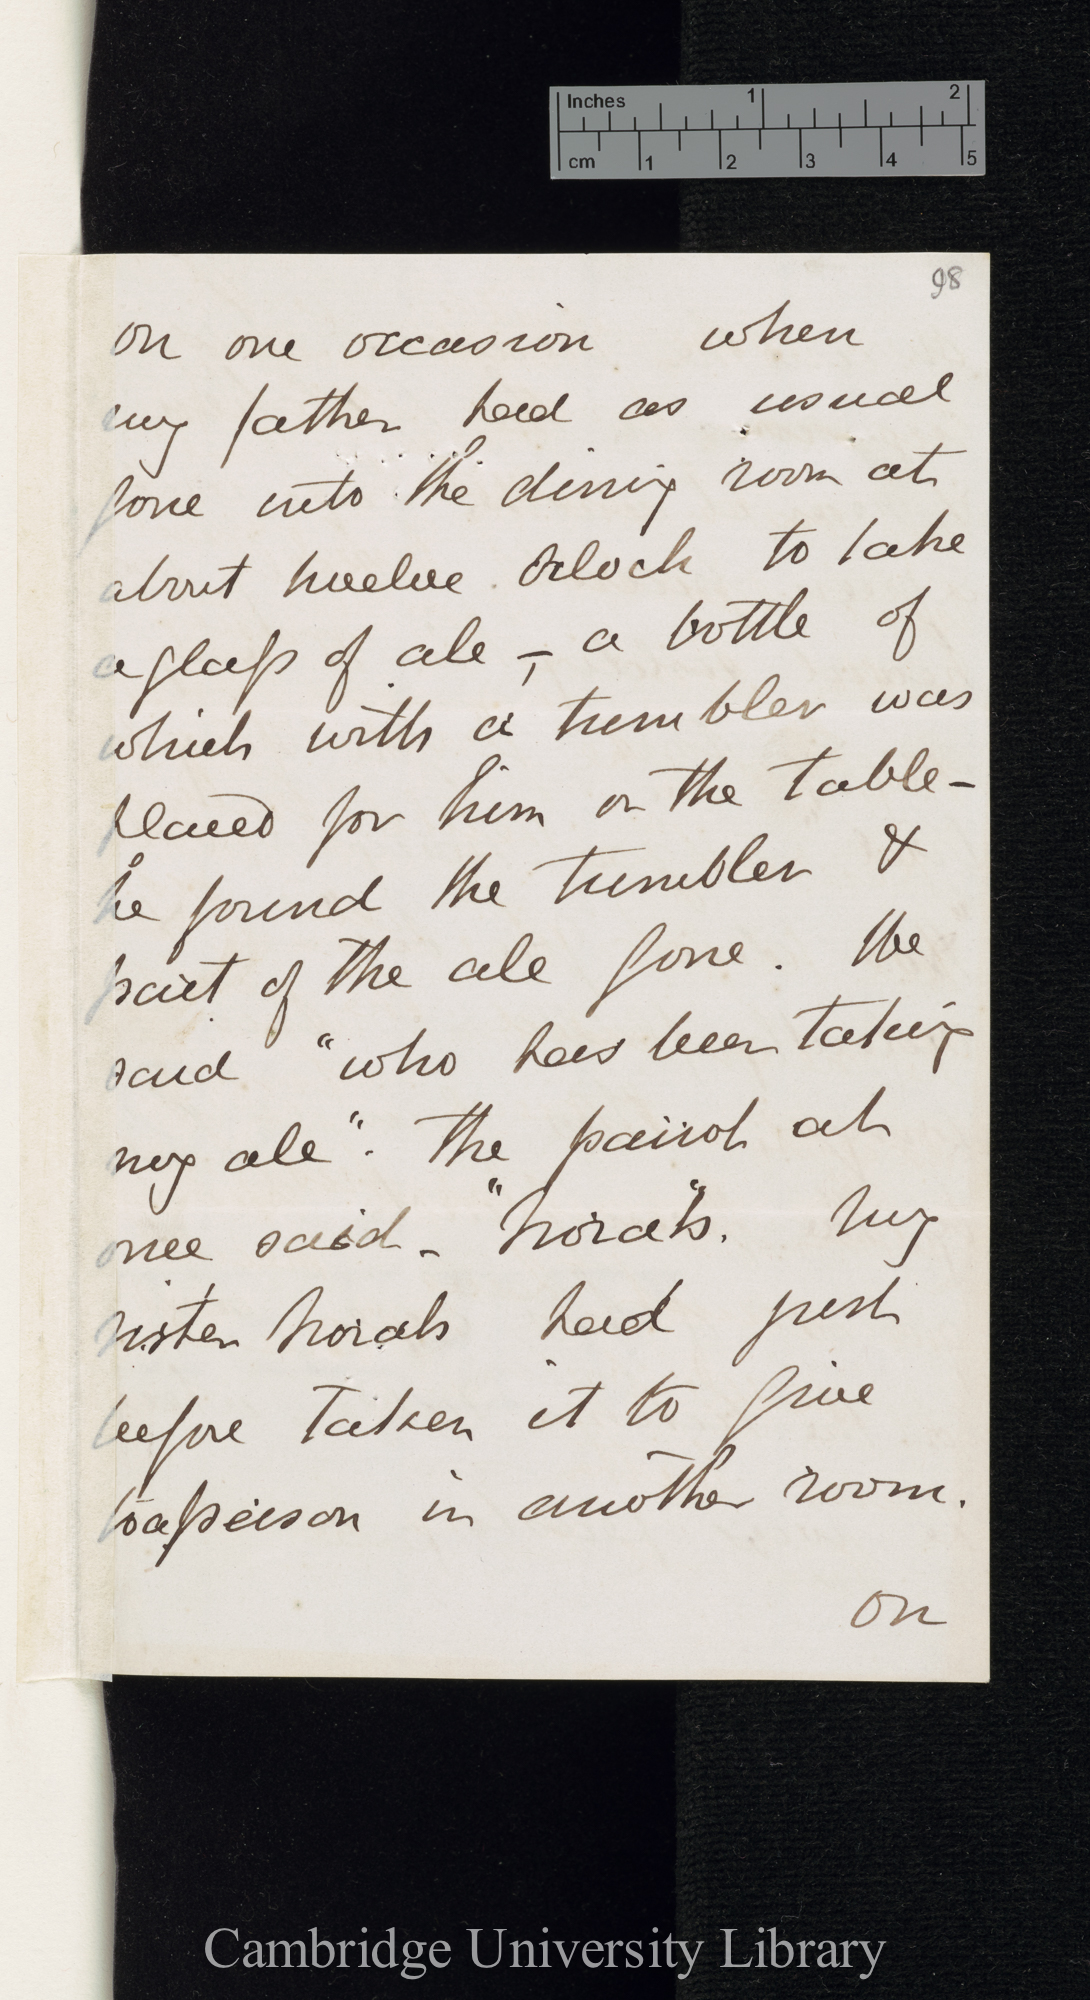 Inches 1 2
cm 1 2 3 4 5
98
On one occasion when
my father had as usual
gone into the dining room at
about twelve Oclock to take
a glass of ale –, a bottle of
which with a tumbler was
placed for him on the table –
he found the tumbler &
part of the ale gone. He
said "who has been taking
my ale". The parrot at
once said – "Norah". My
sister Norah had just
before taken it to give
to a person in another room.
On
Cambridge University Library